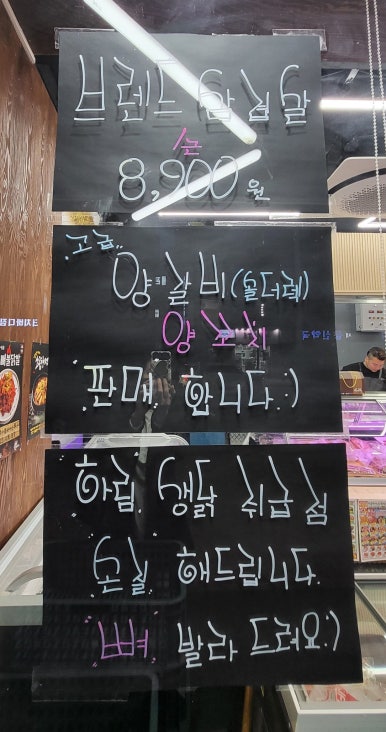 브렌드 삼겹살
1근
8,900원
고급..
양.갈비(숄더렉)
양꼬치
판매 합니다.:)
하림. 생닭 취급점
손질 해드립니다.
뼈 발라 드려요:)